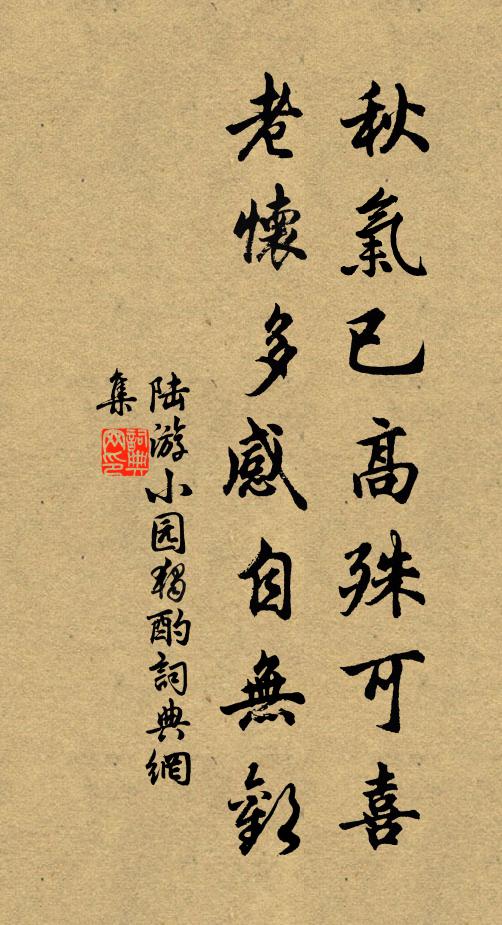 秋氣已高殊可喜
老懷多感自無歡
陆游小园獨酌詞典網
集
詞典网印